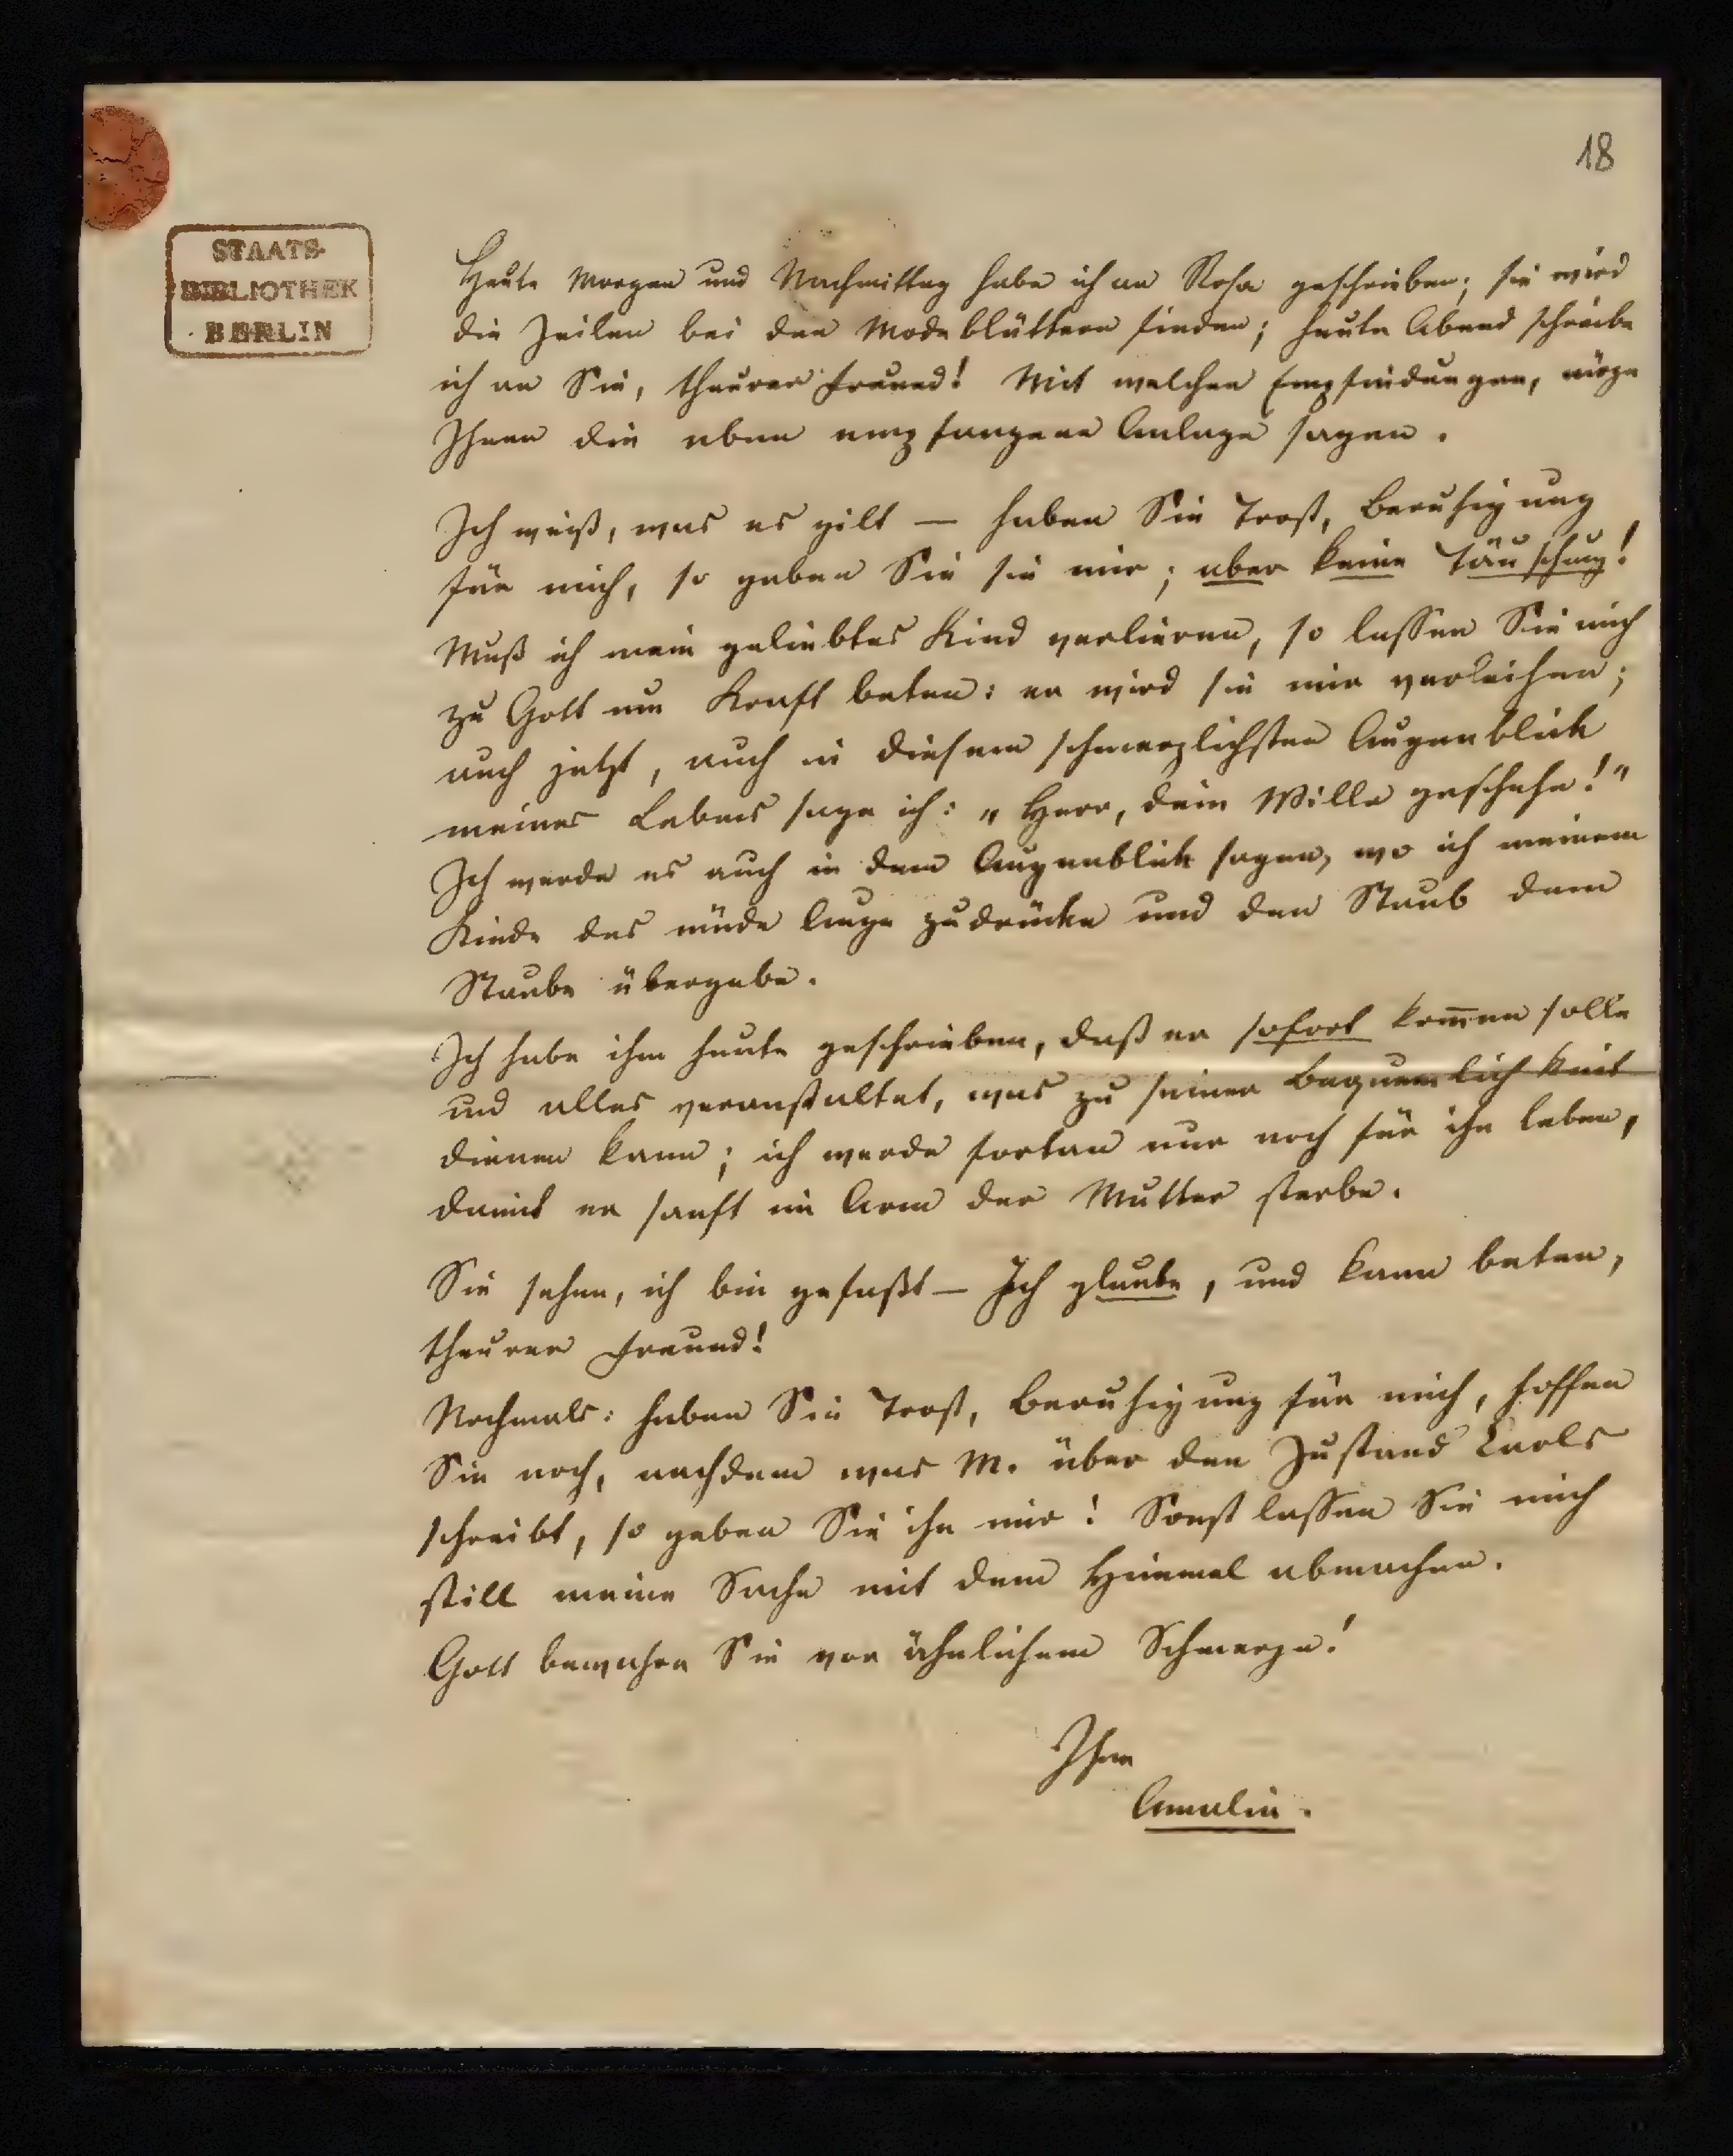 18
STAATS-
BIBLIOTHEK
BERLIN
Heute Morgen und Nachmittag habe ich an Rosa geschrieben; sie wird
die Zeilen bei den Modeblättern finden; heute Abend schreibe
ich an Sie, theurer Freund! Mit welchen Empfindungen, möge
Ihnen die eben empfangene Anlage sagen.
Ich weiß, was es gilt — haben Sie Trost, Beruhigung
für mich, so geben Sie sie mir; aber keine Täuschung!
Muß ich mein geliebtes Kind verlieren, so lassen Sie mich
zu Gott um Kraft beten: er wird sie mir verleihen;
auch jetzt, auch in diesem schmerzlichsten Augenblick
meines Lebens sage ich: „Herr, dein Wille geschehe!"
Ich werde es auch in dem Augenblick sagen, wo ich meinem
Kinde das müde Auge zudrücke und den Staub dem
Staube übergebe.
Ich habe ihm heute geschrieben, daß er sofort kom̅en solle
und alles veranstaltet, was zu seiner Bequemlichkeit
dienen kann; ich werde fortan nur noch für ihn leben,
damit er sanft im Arm der Mutter sterbe.
Sie sehen, ich bin gefaßt — Ich glaube, und kann beten,
theurer Freund!
Nochmals: haben Sie Trost, Beruhigung für mich, hoffen
Sie noch, nachdem was M. über den Zustand Carls
schreibt, so geben Sie ihn mir! Sonst lassen Sie mich
still meine Sache mit dem Himmel abmachen.
Gott bewahre Sie vor ähnlichem Schmerze!
Ihre
Amalie.